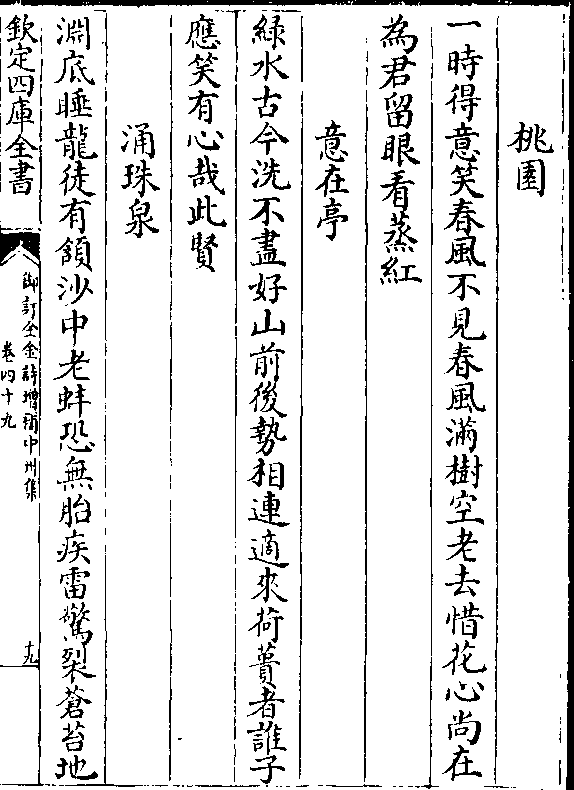 桃園
一時得意笑春風不見春風滿樹空老去惜花心尚在
為君留眼看蒸紅
意在亭
綠水古今洗不盡好山前後勢相連適來荷蕢者誰子
應笑有心哉此賢
涌珠泉
淵底睡龍徒有頷沙中老蚌恐無胎疾雷驚裂蒼苔地
欽定四庫全書
御訂全金詩增補中州集
卷四十九
十九